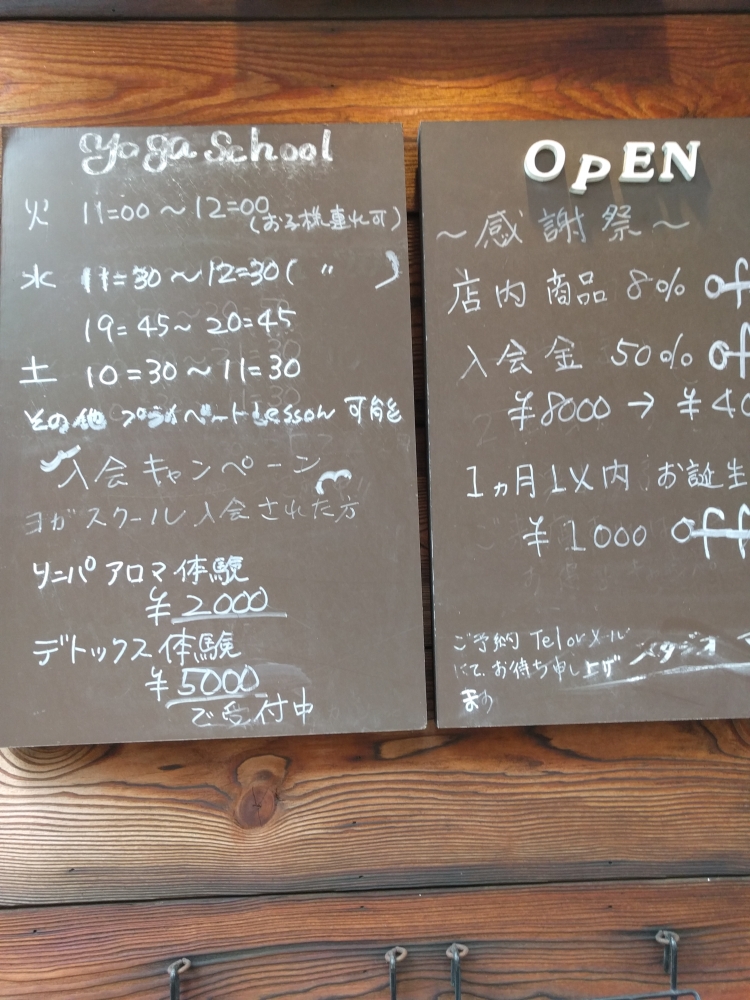 yoga School
火 11:00 ～ 12:00 (お子様連れ可)
水 11:30 ～ 12:30 ( 〃 )
19:45 ～ 20:45
土 10:30 ～ 11:30
その他 プライベートLesson 可能
入会キャンペーン
ヨガスクール入会された方
リンパアロマ体験
¥2000
デトックス体験
¥5000
で受付中
OPEN
～感謝祭～
店内商品 8% off
入会金 50% off
¥8000 → ¥40
1ヵ月以内 お誕生
¥1000 off
ご予約 Tel or メール
にて、お待ち申し上げ
ます
スタジオ